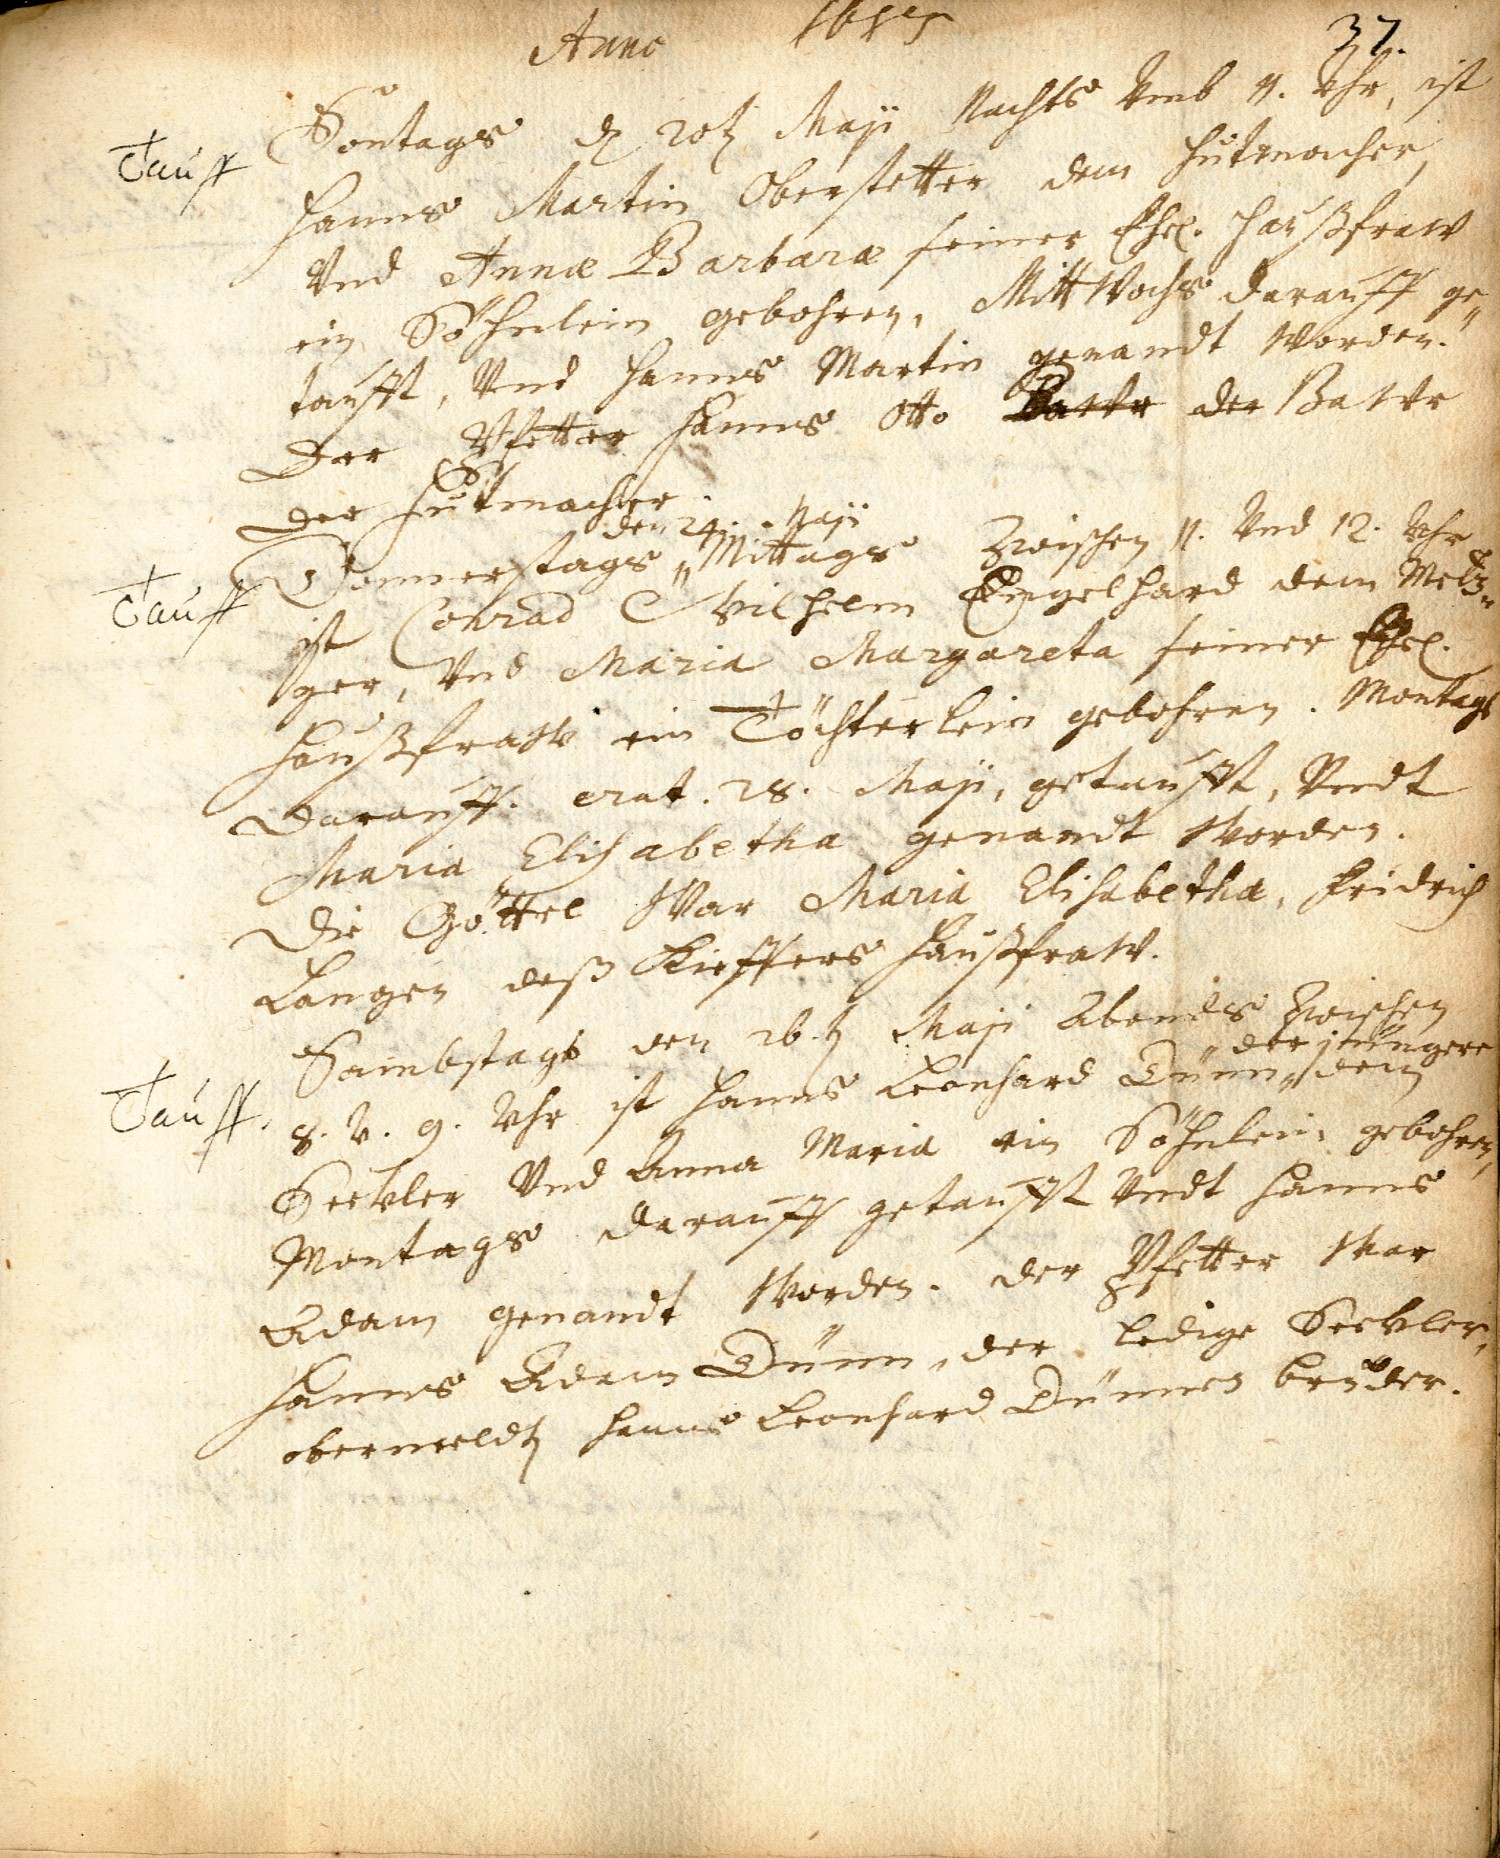 Anno 1655
37.
Tauff
Sontags d 20t Maji Nachts Vmb 11. Vhr, ist
Hanns Martin Oberstetter dem Hutmacher,
Vnd Annæ Barbaræ seiner Ehel. Haußfraw
ein Söhnlein gebohren, Mittwochs darauff ge„
taufft, Vnd Hanns Martin genandt Worden.
Der Pfetter Hanns Otto der Bawr
der Hutmacher.
Tauff
den 24. Maji
Donnerstags „ Mittags Zwischen 11. Vnd 12. Vhr
ist Conrad Wilhelm Engelhard dem Metz„
ger, Vnd Maria Margareta seiner Ehel.
Haußfraw ein Töchterlein gebohren. Montags
Darauff. erat. 28. Maji, getaufft, Vndt
Maria Elisabetha genandt Worden.
Die Göttel War Maria Elisabetha, Fridrich
Langen deß Kieffers Haußfraw.
Tauff.
Sambstags den 26.t Maji Abends Zwischen
der jüngere
8. V. 9. Vhr ist Hanns Leonhard Dünn „ dem
Seckler Vnd Anna Maria ein Söhnlein gebohren,
Montags darauff getaufft Vndt Hanns
Adam genandt Worden. der Pfetter War
Hanns Adam Dünn, der ledige Seckler,
obermeldt Hanns Leonhard Dünnen bruder.